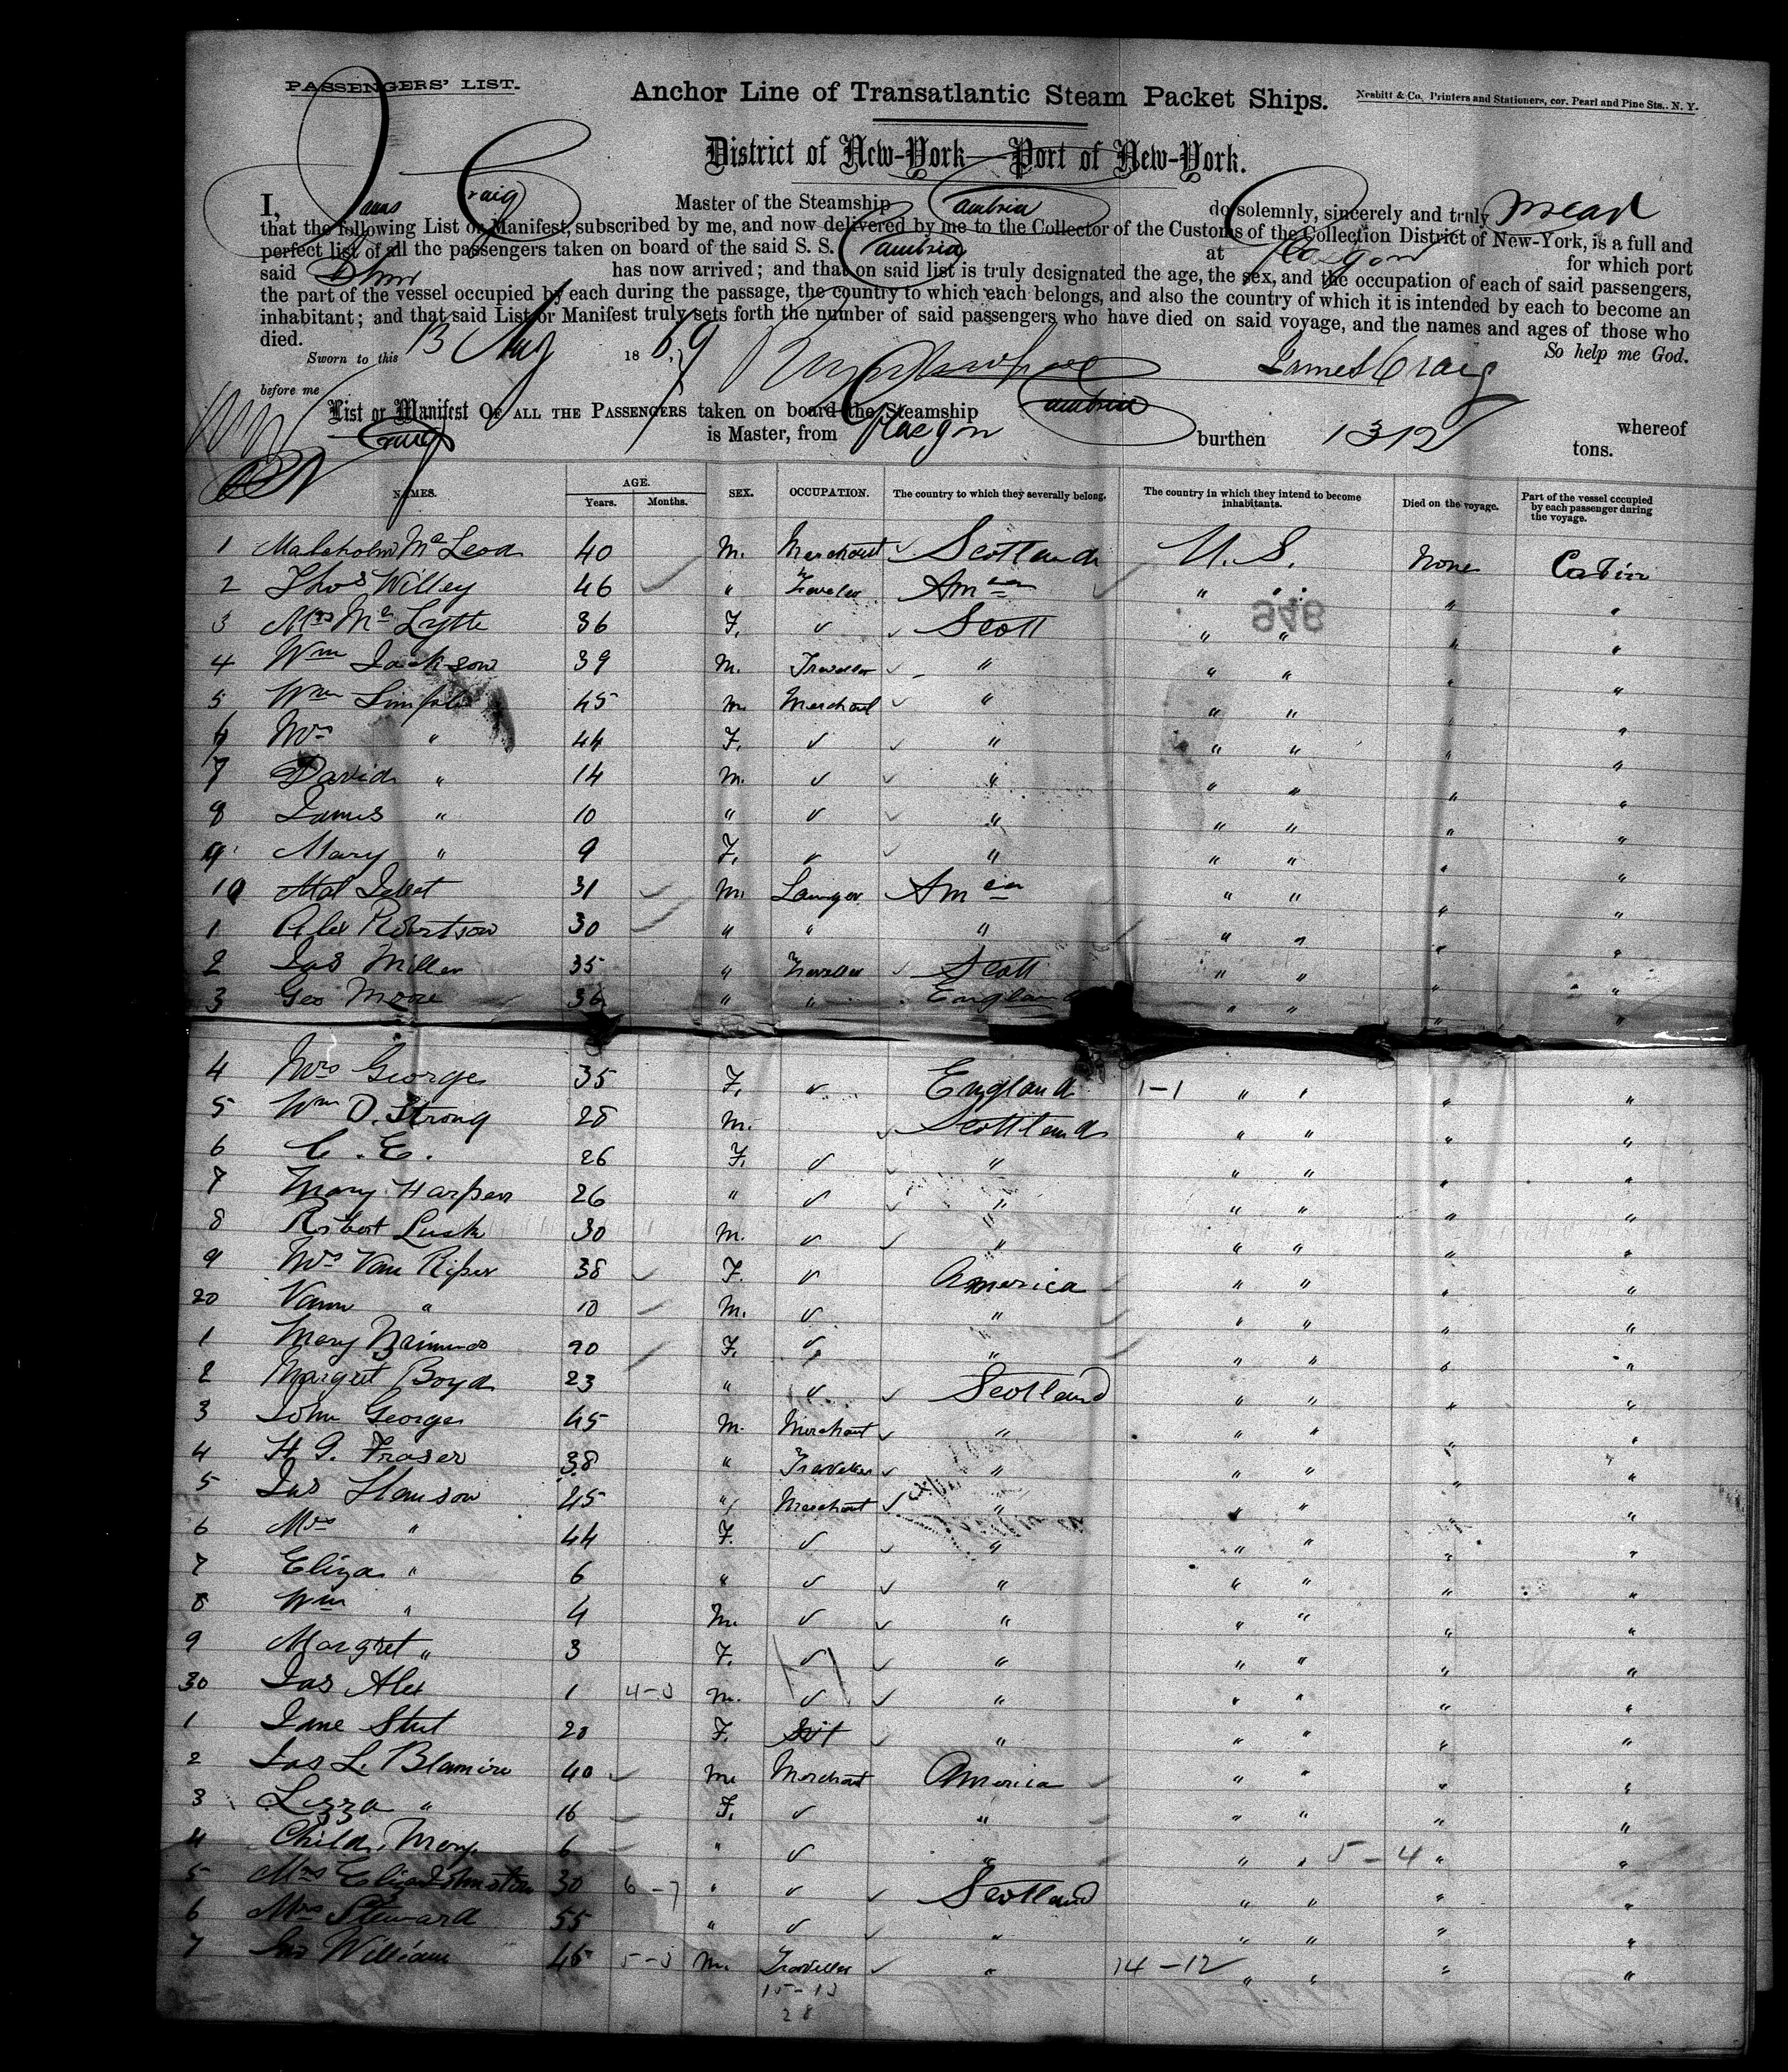 PASSENGERS' LIST.
Anchor Line of Transatlantic Steam Packet Ships.
Nesbitt & Co. Printers and Stationers, cor. Pearl and Pine Sts., N. Y.
District of New-York—Port of New-York.
I, James Craig Master of the Steamship Cambria do solemnly, sincerely and truly swear
that the following List or Manifest, subscribed by me, and now delivered by me to the Collector of the Customs of the Collection District of New-York, is a full and
perfect list of all the passengers taken on board of the said S. S. Cambria at Glasgow for which port
said Ship has now arrived; and that on said list is truly designated the age, the sex, and the occupation of each of said passengers,
the part of the vessel occupied by each during the passage, the country to which each belongs, and also the country of which it is intended by each to become an
inhabitant; and that said List or Manifest truly sets forth the number of said passengers who have died on said voyage, and the names and ages of those who
died.
So help me God.
Sworn to this 13 Aug 1869
James Craig
before me
List or Manifest OF ALL THE PASSENGERS taken on board the Steamship Cambria whereof
Craig is Master, from Glasgow burthen 1312 tons.
NAMES. AGE. Years. Months. SEX. OCCUPATION. The country to which they severally belong. The country in which they intend to become inhabitants. Died on the voyage. Part of the vessel occupied by each passenger during the voyage.
1 Malcholm McLeod 40 M. Merchant Scotland U. S. None Cabin
2 Thos Willey 46 " Traveler Amcn " " " "
3 Mrs Mc Lytte 36 F. Scott " " " "
946
4 Wm Jackson 39 M. Traveller " " " " "
5 Wm 45 M. Merchant " " " " "
6 Mrs " 44 F. " " " " "
7 David " 14 M. " " " " "
8 James " 10 " " " " " "
9 Mary " 9 F. " " " " "
10 31 M. Lawyer Amcn " " " "
1 Alex Robertson 30 " " " " " " "
2 Jas Miller 35 " Traveller Scott " " " "
3 Geo Moore 36 " " England " " " "
4 Mrs George 35 F. England 1-1 " " " "
5 Wm O. Strong 28 M. Scottland " " " "
6 C. E. 26 F. " " " " "
7 Mary Harper 26 " " " " " "
8 Robert Lusk 30 M. " " " " "
9 Mrs Van Riper 38 F. America " " " "
20 Vann " 10 M. " " " " "
1 Mary 20 F. " " " " "
2 Margret Boyd 23 " Scotland " " " "
3 John George 45 M. Merchant " " " " "
4 H. G. Fraser 38 " Traveller " " " " "
5 Jas 45 " Merchant " " " " "
6 Mrs " 44 F. " " " " "
7 Eliza " 6 " " " " " "
8 Wm " 4 M. " " " " "
9 Margret " 3 F. " " " " "
30 Jas Alex 1 4-3 M. " " " " "
1 Jane 20 F. " " " " "
2 Jas L. Blamire 40 M Merchant America " " " "
3 Lizza " 16 F. " " " " "
4 Child, Mary. 6 " " " " 5-4 " "
5 Mrs Eliza Johnston 30 6-7 " Scotland " " " "
6 Mrs Steward 55 " " " " " "
7 William 45 5-3 M. Traveller " 14-12 " " " "
15-13
28